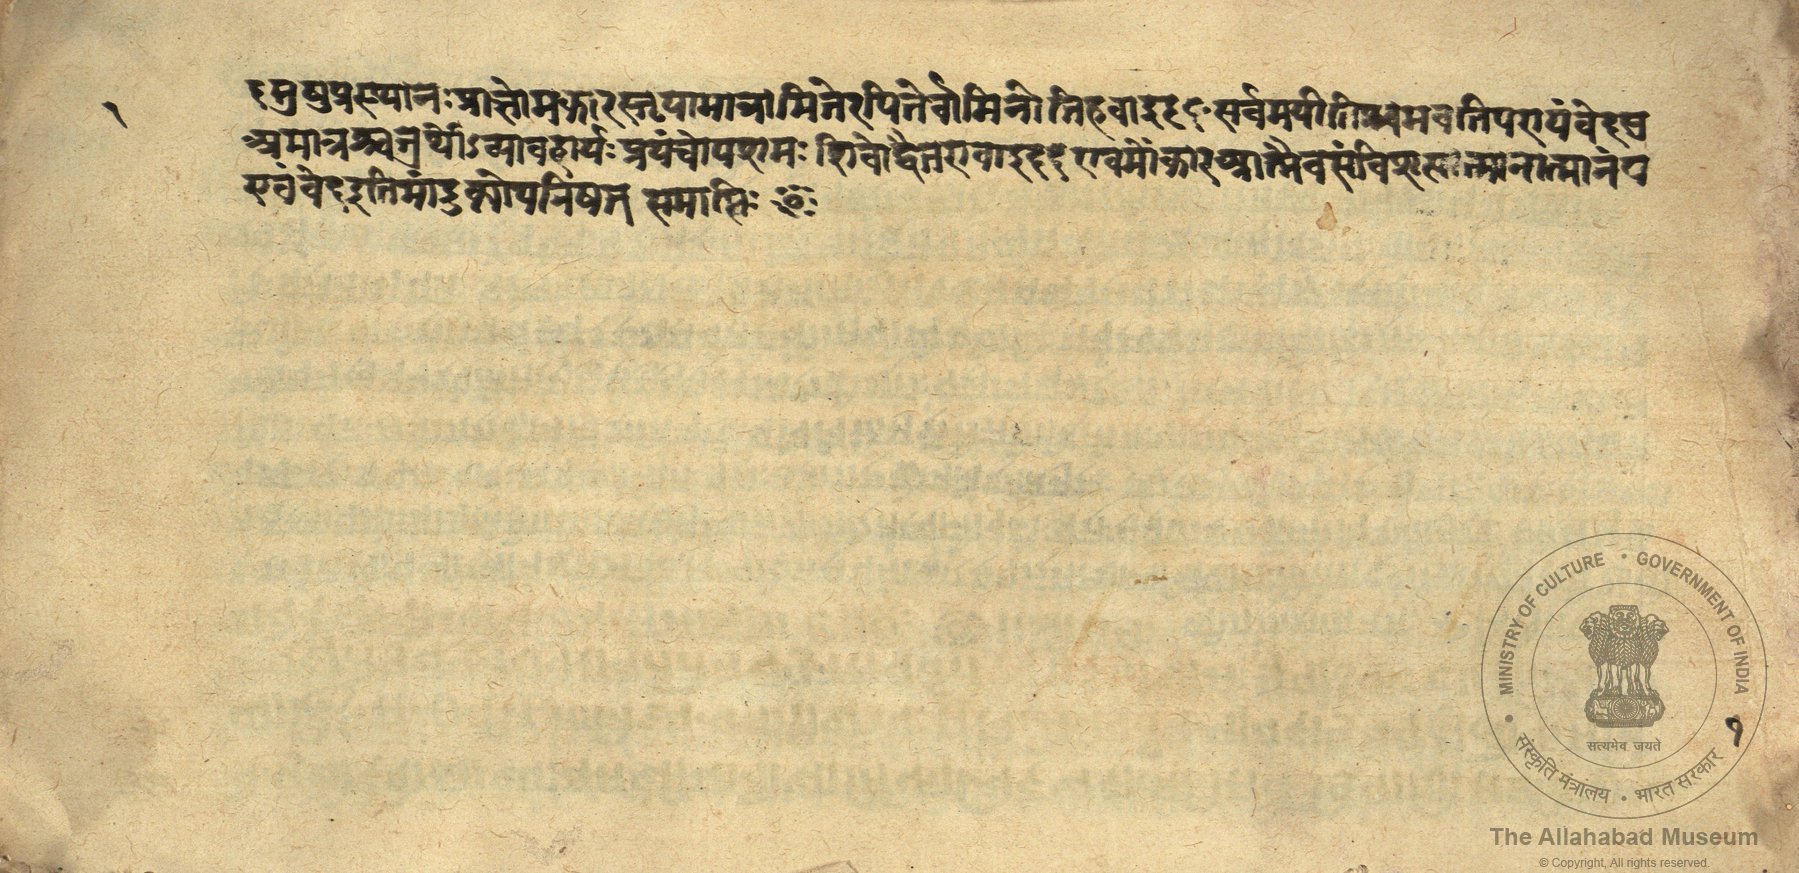 द सुषुप्तस्थानः प्राज्ञो मकारस्तृपामात्रा मितेरपितेर्वा मिनोति हवा इद ६ सर्वमपीतीश्च भवति प एवं वेद ए
अमात्रश्चतुर्थोऽव्यावहार्यः प्रपंचोपशमः शिवोद्वैत एवा इद ६ एवमोंकार आत्मैव संविशत्यात्मनात्मानं प
एवं वेद इति मांडुक्योपनिषत् समाप्तिः
१
१
MINISTRY OF CULTURE • GOVERNMENT OF INDIA
सत्यमेव जयते
संस्कृति मंत्रालय • भारत सरकार
The Allahabad Museum
© Copyright, All rights reserved.